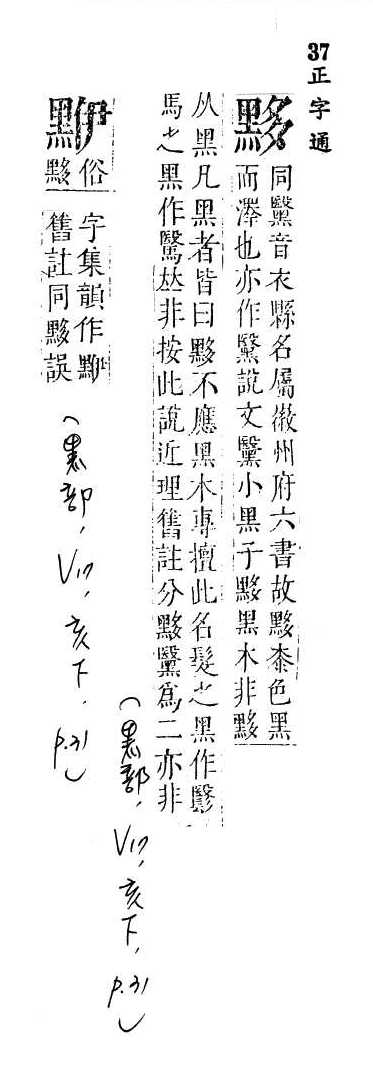 37 正字通
黟
同黳音衣縣名屬徽州府六書故黟桼色黑
而澤也亦作黳說文黳小黑子黟黑木非黟
从黑凡黑者皆曰黟不應黑木專擅此名髮之黑作
馬之黑作 𠀤非按此說近理舊註分黟黳爲二亦非
(黑部, V12, 亥下, p.31)
俗 字集韻作
黟 舊註同黟誤
(黑部, V12, 亥下, p.31)